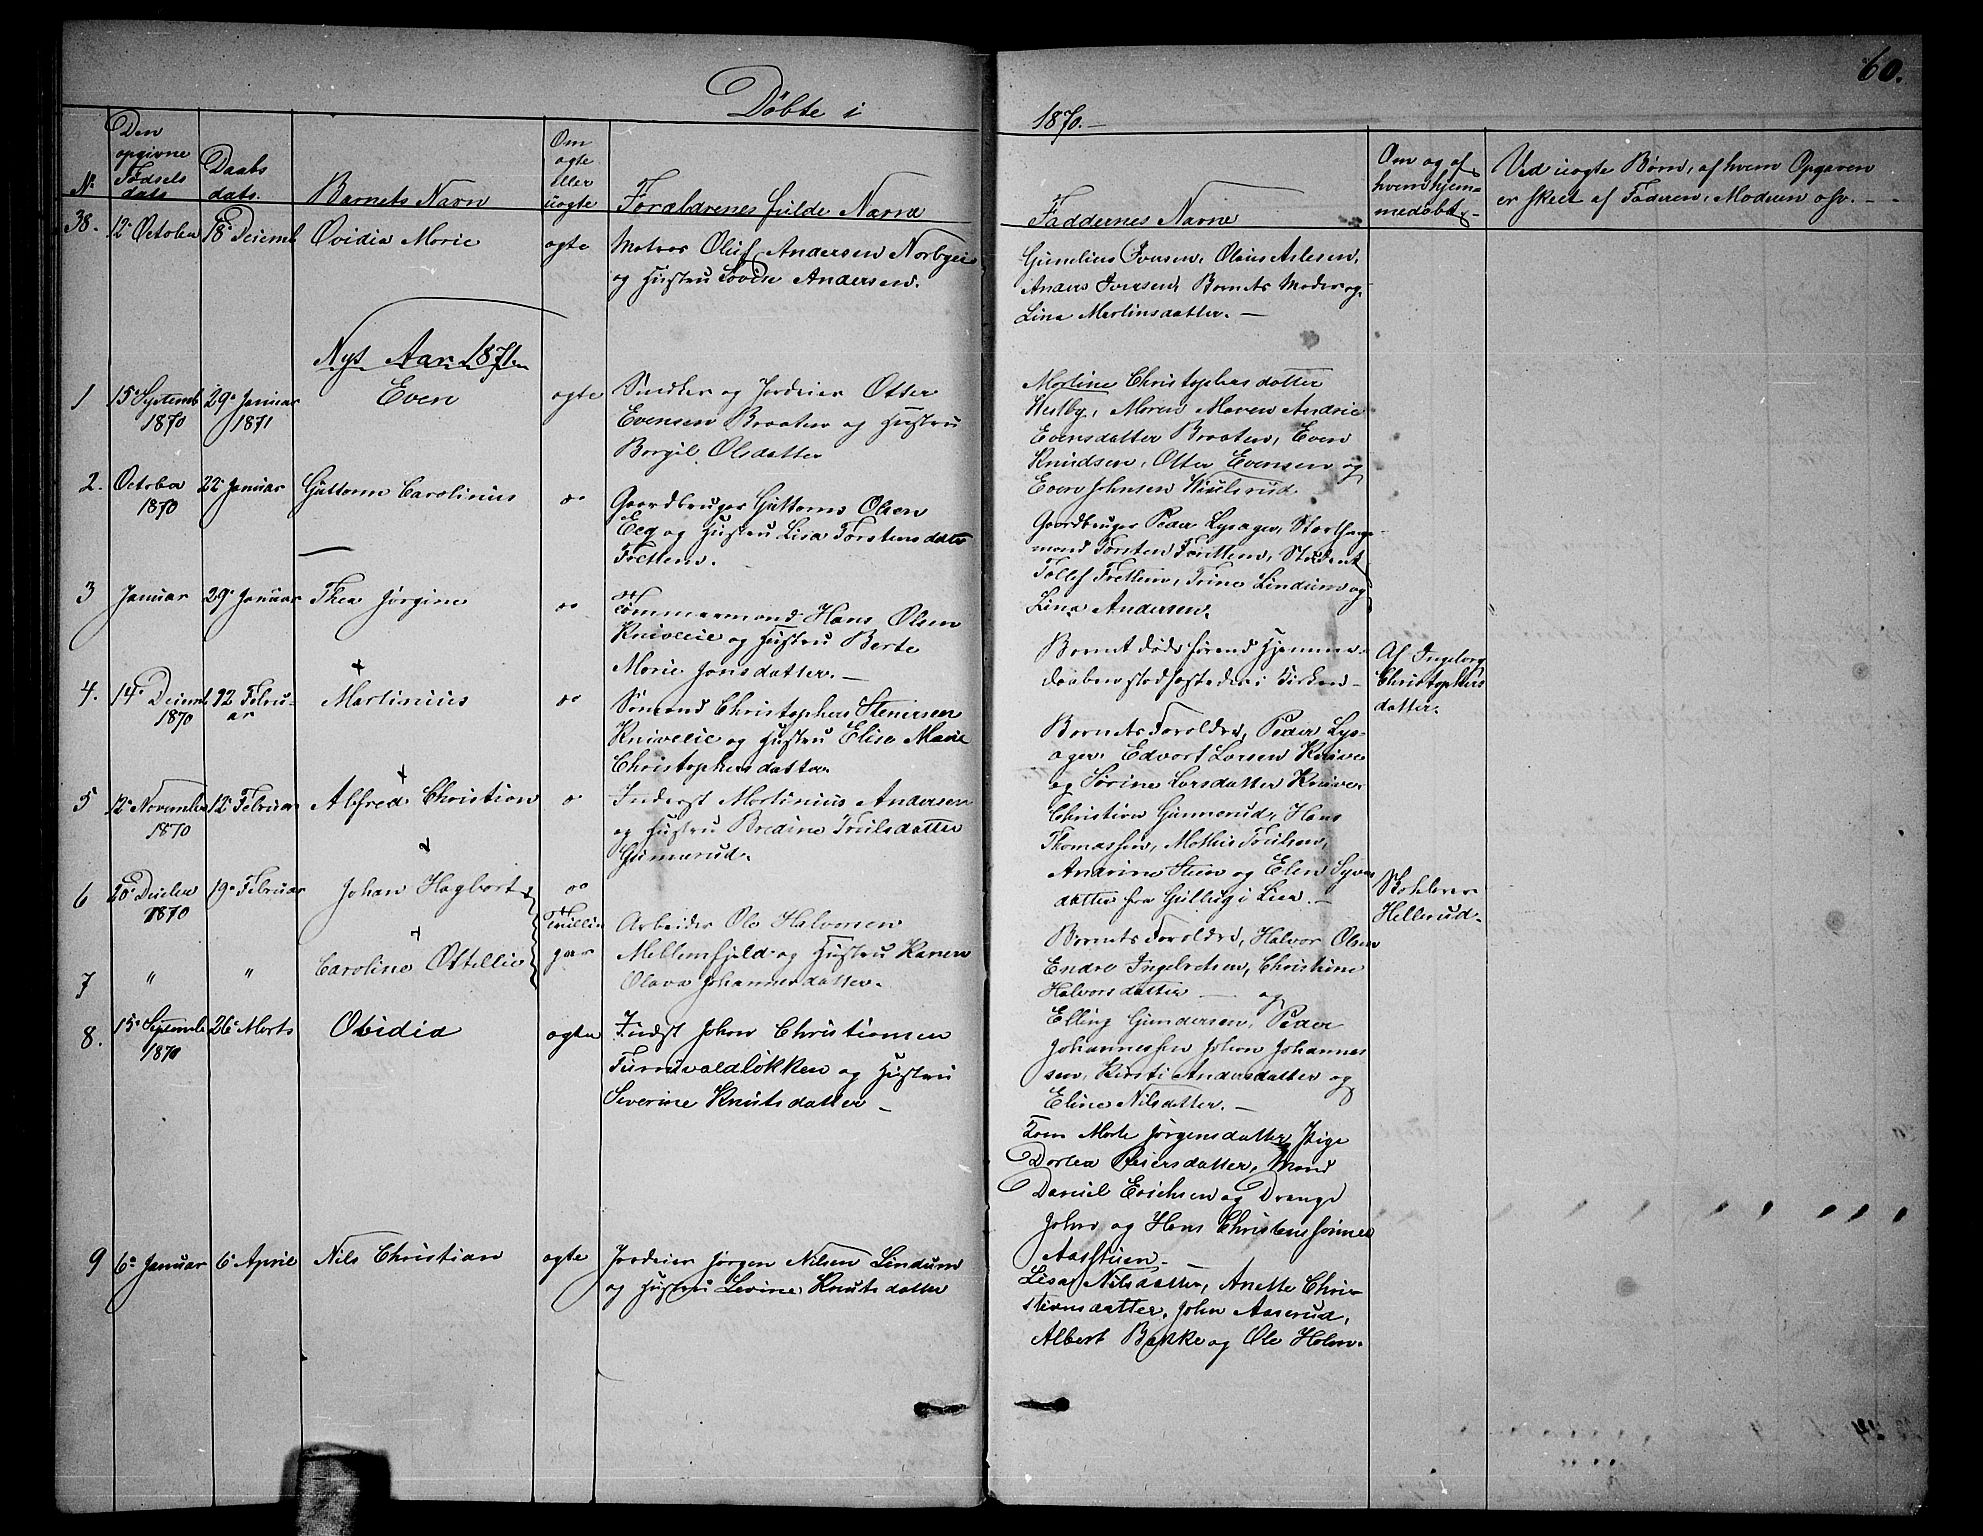 60.
Döbte i
1870.-
No
Den opgivne Fødsels dats
Daabs dats.
Barnets Navn
Om ægte eller uægte
Forældrenes fulde Navne
Faddernes Navne
Om og af hvem hjemmedøbt.-
Ved uægte Børn, af hvem Opgaven
er skeet af Faderen, Moderen osv. -
38.
12te October
18de Decemb
Ovidia Marie
ægte
Matros Oluf Andersen Norbyeie
og Hustru Lovise Andersen.
Gunelius Iversen, Olaus Aslesen,
Anders Iversen, Barnets Moder og
Lina Martinsdatter. -
Nyt Aar 1871
1
15de Septemb
1870
29de Januar
1871
Even
ægte
Snedker og Jordeier Otter
Evensen Braaten og Hustru
Borgil Olsdatter
Martine Christophersdatter
Westby, Maren Andrie
Evensdatter Braaten, Even
Knudsen, Otter Evensen og
Even Johnsen
2.
October
1870
22de Januar
Guttorm Carolinius
do
Gaardbruger Guttorm Olsen
Eeg og Hustru Lisa Torstensdatter
Fretten.
Gaardbruger Peder Lysager, Storthings
mand Torsten Fretten, Student
Tollef Fretten, Trine Lindum og
Lina Andersen.
3
Januar
29de Januar
Thea Jørgine
do
Tømmermand Hans Olsen
Kniveeie og Hustru Berte
Marie Jonsdatter. -
Barnet døde førend Hjemme-
daaben stadfæstedes i Kirken -
Af Ingeborg
Christophers
datter.
4.
14de Decemb
1870
12 Febru-
ar
Martinius
do
Sømand Christopher Stenersen
Kniveeie og Hustru Elise Marie
Christophersdatter
Barnets Forældre, Peder Lys-
ager, Edvart Larsen Knive
og Sørine Larsdatter Knive
5
12te November
1870
12te Februar
Alfred Christian
do
Inderst Martinius Andersen
og Hustru Bredine Truilsdatter
Gunnerud.
Christian Gunnerud, Hans
Thomassen, Mathis Truilsen,
Andrine Steen og Elen Syvers
datter fra Gullaug i Lier. -
6
20de Decber
1870
19de Februar
Johan Hagbart
do
Tvillin
gaar
Arbeider Ole Halvorsen
Mellemfjeld og Hustru Karen
Olava Johannesdatter.
Barnets Forældre, Halvor Olsen
Endre Ingebretsen, Christiane
Halvorsdatter - og
Skolelærer
Hellerud.
7
"
"
Caroline Ottellie
Elling Gundersen, Peder
Johannessen Johan Johannes
sen, Kirsti Andersdatter og
Eline Nilsdatter. -
8.
15de Septemb
1870
26de Marts
Obidia
ægte
Inderst Johan Christiansen
Furuvaldløkken og Hustru
Severine Knutsdatter -
Kone Marte Jørgensdatter, Pige
Dortea Reiersdatter, Mand
Daniel Erichsen og Drenge
Johan og Hans Christensønner
Aasstuen.
9
6te Januar
6te April
Nils Christian
ægte
Jordeier Jørgen Nilsen Lindum
og Hustru Levine Knutsdatter
Lisa Nilsdatter, Anette Chri-
stiansdatter, John Aaserud,
Albert Bakke og Ole Holm.